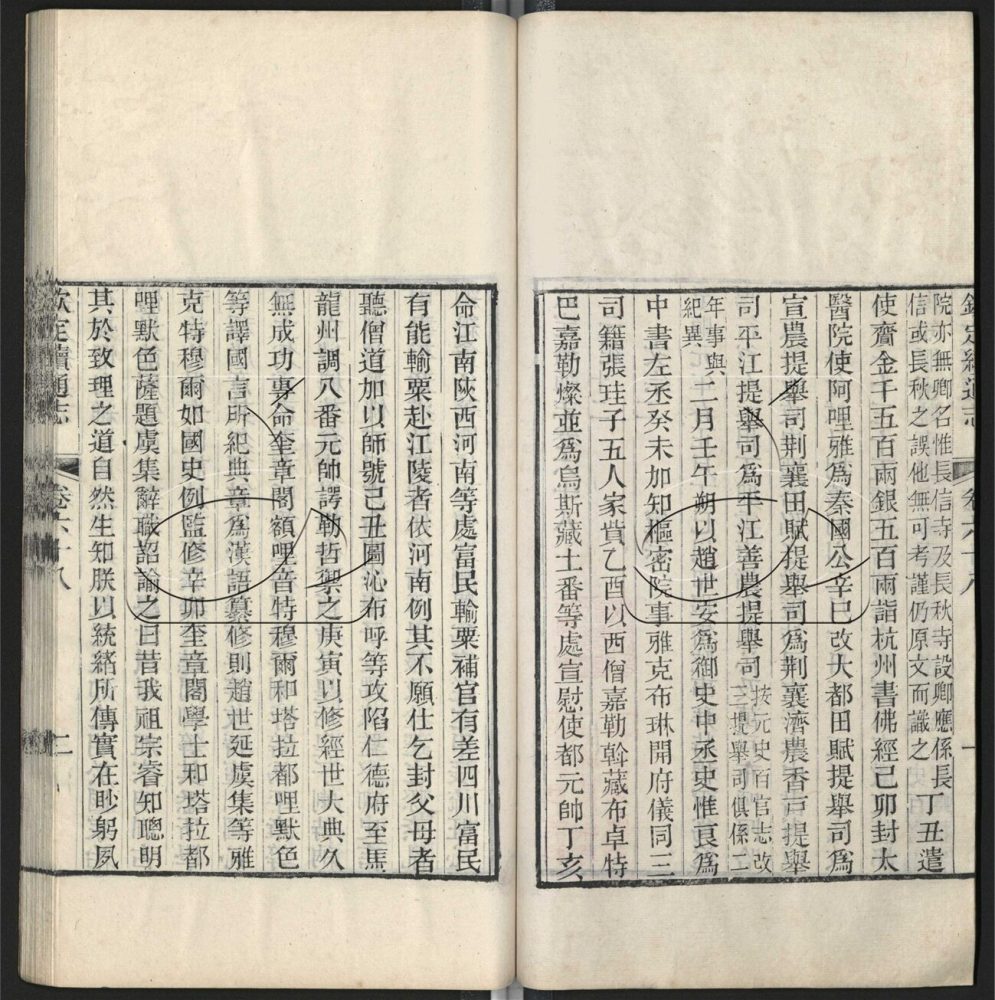 欽定續通志
卷六十八
一
院亦無卿名惟長信寺及長秋寺設卿應係長
信或長秋之誤他無可考謹仍原文而識之
丁丑遣
使齎金千五百兩銀五百兩詣杭州書佛經己卯封太
醫院使阿哩雅爲秦國公辛巳改大都田賦提舉司爲
宣農提舉司荆襄田賦提舉司爲荆襄濟農香戸提舉
司平江提舉司爲平江善農提舉司
按元史百官志改
三提舉司俱係二
年事與
紀異
二月壬午朔以趙世安爲御史中丞史惟良爲
中書左丞癸未加知樞密院事雅克布琳開府儀同三
司籍張珪子五人家貲乙酉以西僧嘉勒斡藏布卓特
巴嘉勒燦並爲烏斯藏土番等處宣慰使都元帥丁亥
命江南陜西河南等處富民輸粟補官有差四川富民
有能輸粟赴江陵者依河南例其不願仕乞封父母者
聽僧道加以師號己丑圖沁布呼等攻陷仁德府至馬
龍州調八番元帥諤勒哲禦之庚寅以修經世大典久
無成功專命奎章閣額哩音特穆爾和塔拉都哩默色
等譯國言所紀典章爲漢語纂修則趙世延虞集等雅
克特穆爾如國史例監修辛卯奎章閣學士和塔拉都
哩默色薩題虞集辭職詔諭之曰昔我祖宗睿知聰明
其於致理之道自然生知朕以統緒所傳實在眇躬夙
欽定續通志
卷六十八
二